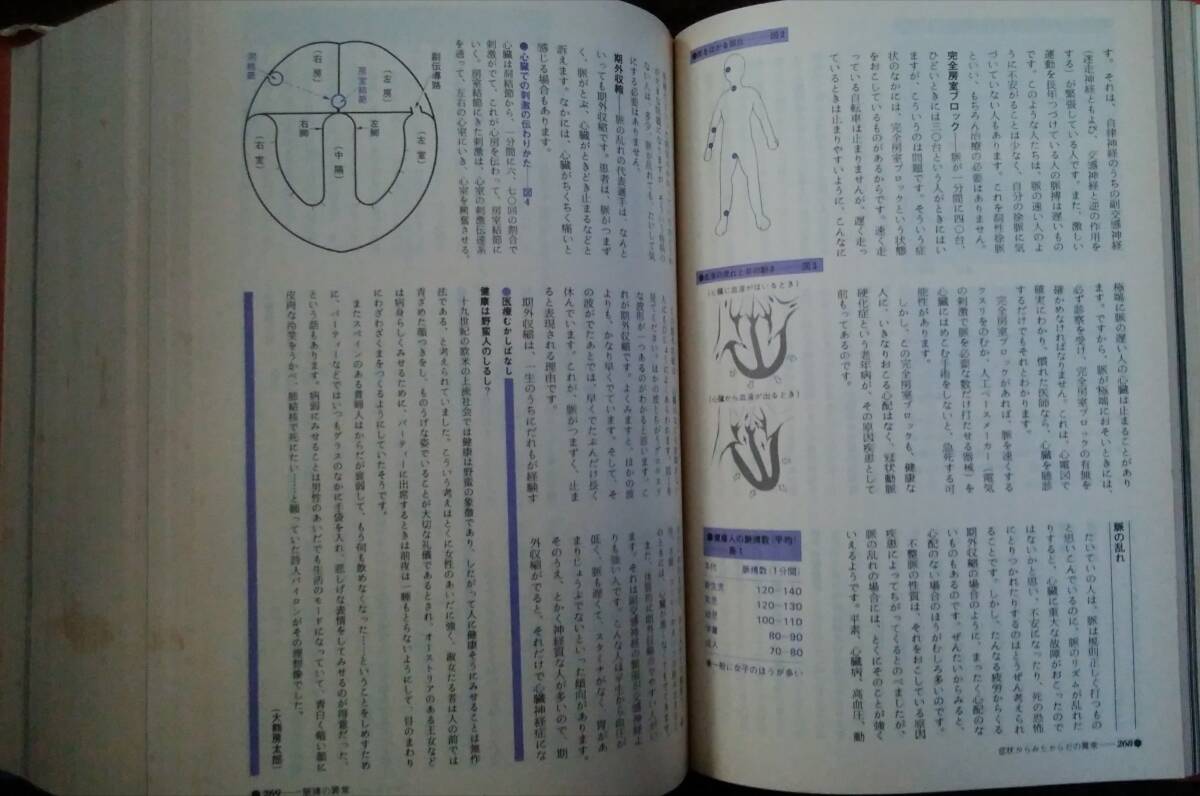 す。それは、自律神経のうちの副交感神経
(迷走神経ともよび、交感神経と逆の作用を
する)が緊張している人です。また、激しい
運動を長年つづけている人の脈搏は遅いもの
です。このようなかたは、脈の速い人のよ
うに不安がることは少なく、自分の徐脈に気
づいていない人もあります。これを洞性徐脈
といい、もちろん治療の必要はありません。
完全房室ブロック——脈が一分間に四〇台、
ひどいときには三〇台という人がときにはい
ますが、こういうのは問題です。そういう症
状のなかには、完全房室ブロックという状態
をおこしているものがあるからです。速く走
っている自転車は止まりませんが、遅く走っ
ているときは止まりやすいように、こんなに
図2
極端に脈の遅い人の心臓は止まることがあり
ます。ですから、脈が極端におそいときには、
必ず診察を受け、完全房室ブロックの有無を
確かめなければなりません。これは、心電図で
確実にわかり、慣れた医師なら、心臓を聴診
するだけでもそれとわかります。
完全房室ブロックがあれば、脈を速くする
クスリをのむか、人工ペースメーカー(電気
の刺激で脈を必要な数だけ打たせる器械)を
心臓にはめこむ手術をしないと、急死する可
能性があります。
しかし、この完全房室ブロックも、健康な
人に、いきなりおこる心配はなく、冠状動脈
硬化症という老年病が、その原因疾患として
前もってあるのです。
図3
(心臓に血液がはいるとき)
(心臓から血液が出るとき)
脈の乱れ
たいていの人は、脈は規則正しく打つもの
と思いこんでいるのに、脈のリズムが乱れた
りすると、心臓に重大な故障がおこったので
はないかと思い、不安になったり、死の恐怖
にとりつかれたりするのはとうぜん考えられ
ることです。しかし、たんなる疲労からくる
期外収縮の場合のように、まったく心配のな
いものもあるのです。ぜんたいからみると、
心配のない場合のほうがむしろ多いのです。
不整脈の性質は、それをおこしている原因
疾患によってちがってくるとのべましたが、
脈の乱れの場合には、とくにそのことが強く
いえるようです。平素、心臓病、高血圧、動
●健康人の脈搏数(平均)
表1
年代 脈搏数(1分間)
120-140
120-130
100-110
学童 80-90
成人 70-80
●一般に女子のほうが多い
症状からみたからだの異常——268●
ない人は、多少、脈が乱れても、たいして気
にする必要はありません。
期外収縮——脈の乱れの代表選手は、なんと
いっても期外収縮です。患者は、脈がつまず
く、脈がとぶ、心臓がときどき止まるなどと
訴えます。なかには、心臓がちくちく痛いと
感じる場合もあります。
●心臓での刺激の伝わりかた——図4
心臓は洞結節から、一分間に六、七〇回の割合で
刺激がでて、これが心房を伝わって、房室結節に
いく。房室結節にきた刺激は、心室の刺激伝達系
を通って、左右の心室にいき、心室を興奮させる。
副伝導路
(右房)
房室結節
(左房)
右脚
左脚
(右室)
(中隔)
(左室)
な波形が一つあるのがわかると思います。こ
れが期外収縮です。よくみますと、ほかの波
よりも、かなり早くでています。そして、そ
の波がでたあとでは、早くでたぶんだけ長く
休んでいます。これが、脈がつまずく、止ま
ると表現される理由です。
期外収縮は、一生のうちにだれもが経験す
りも強い人です。こんな人は平生から血圧が
低く、脈も遅くて、スタミナがなく、胃があ
まりじょうぶでないといった傾向があります。
そのうえ、とかく神経質な人が多いので、期
外収縮がでると、それだけで心臓神経症にな
●医療むかしばなし
健康は野蛮人のしるし?
十九世紀の欧米の上流社会では健康は野蛮の象徴であり、したがって人に健康そうにみせることは無作
法である、と考えられていました。こういう考えはとくに女性のあいだに強く、淑女たる者は人の前では
青ざめた顔つきをし、ものうげな姿でいることが大切な礼儀であるとされ、オーストリアのある王女など
は病身らしくみせるために、パーティーに出席するときは前夜は一睡もとらないようにして、目のまわり
にわざわざくまをつくるようにしていたそうです。
またスペインのある貴婦人はからだが衰弱して、もう何も飲めなくなった……ということをしめすため
に、パーティーなどではいつもグラスのなかに手袋を入れ、悲しげな表情をしてみせるのが得意だった、
という話もあります。病弱にみせることは男性のあいだでも生活のモードになっていて、青白く暗い顔に
皮肉な冷笑をうかべ、肺結核で死にたい……と願っていた詩人バイロンがその理想像でした。
(大鶴房太郎)
●269——脈搏の異常